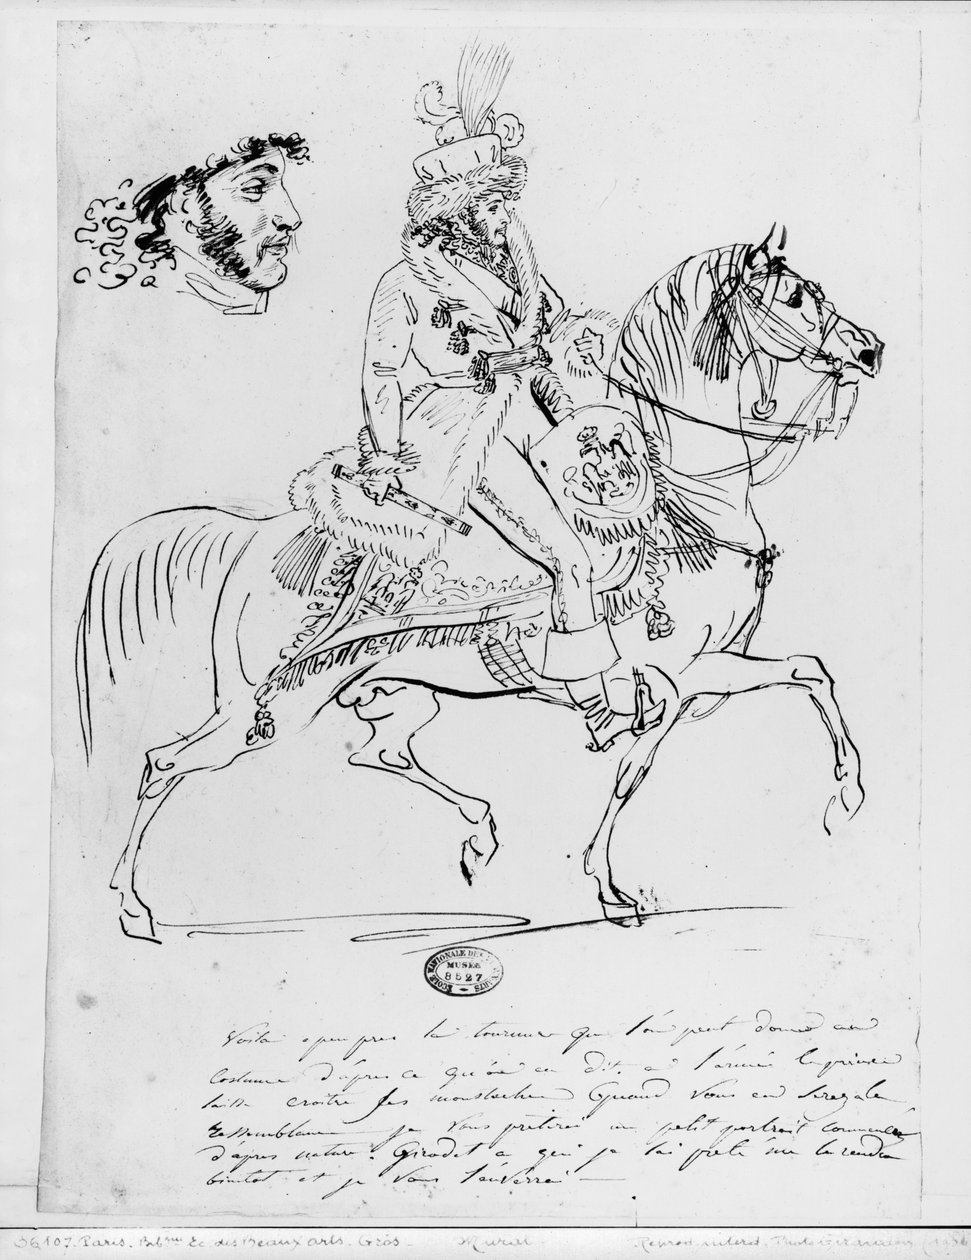 ECOLE NATIONALE DES BEAUX ARTS
MUSEE
8527
Voila a peu pres la tournure que l'on peut donner au
costume d'apres ce qu'on en dit. a l'armée le prince
laisse croitre ses moustaches Quand vous en serez a la
ressemblance je vous preterai un petit portrait commencé
d'apres nature. Girodet a qui je l'ai preté me le rendra
bientot et je vous l'enverrai
36107. Paris. Bibque Ec. des Beaux arts. Gros - Murat Reprod. interd. Photo Giraudon